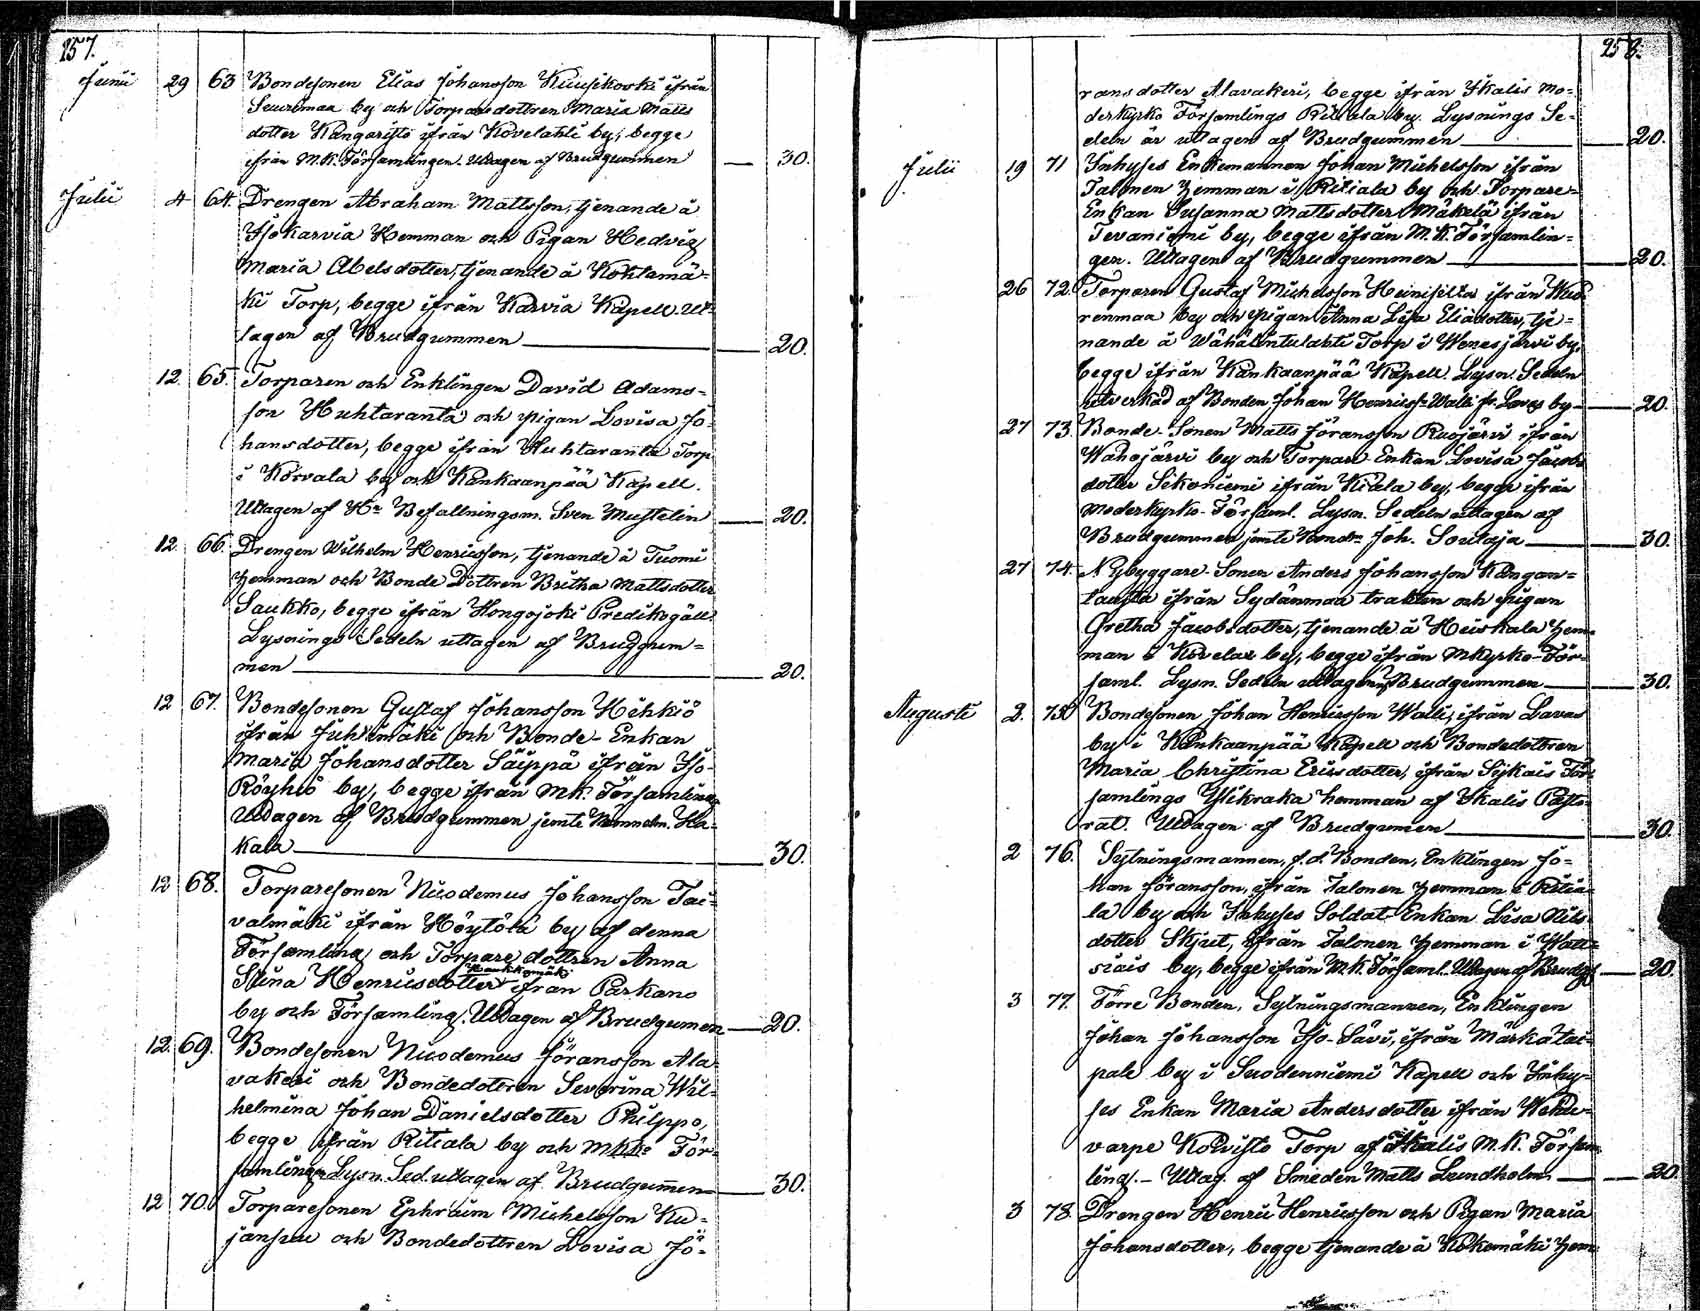 257.
Junii 29 63 Bondesonen Elias Johansson Kuusikoski ifrån
by och Torparedottren Maria Matts
dotter Kangaristo ifrån Kovelahti by, begge
ifrån M.K. Församlingen. Uttagen af Brudgummen — 30.
Julii 4 64. Drengen Abraham Mattsson, tjenande å
Isokarvia Hemman och Pigan Hedvig
Maria Abelsdotter, tjenande å Kohtamä-
ki Torp, begge ifrån Karvia Kapell. Ut-
tagen af Brudgummen — 20.
12. 65. Torparen och Enklingen David Adams-
son Huhtaranta och Pigan Lovisa Jo-
hansdotter, begge ifrån Huhtaranta Torp
i Korvala by och Kankaanpää Kapell.
Uttagen af Kr Befallningsm. Sven Mustelin — 20.
12. 66. Drengen Wilhelm Henricsson, tjenande å Tuomi
Hemman och Bonde Dottren Britha Mattsdotter
Saukko, begge ifrån Hongojoki Predikogäll.
Lysnings Sedeln uttagen af Brudgum-
men — 20.
12 67. Bondesonen Gustaf Johansson Hihkiö
ifrån Juhtimäki och Bonde-Enkan
Maria Johansdotter Säippä ifrån Iso-
Röyhiö by, begge ifrån MK. Församling
Uttagen af Brudgummen jemte Nämndem. Ha-
kala — 30.
12 68. Torparesonen Nicodemus Johansson Tai-
valmäki ifrån Höytölä by af denna
Församling och Torpare dottren Anna
Stina Henricsdotter Haukkomäki ifrån Parkano
by och Församling. Uttagen af Brudgumen — 20.
12. 69. Bondesonen Nicodemus Jöransson Ala-
vakeri och Bondedottren Severina Wil-
helmina Johan Danielsdotter Philppo,
begge ifrån Ritiala by och M.K. För-
samlingen Lysn. Sed. uttagen af Brudgummen — 30.
12 70. Torparesonen Ephraim Michelsson Ku-
janpää och Bondedottren Lovisa Jö-
258.
ransdotter Alavakeri, begge ifrån Ikalis Mo-
derkyrko Församlings Ritiala by. Lysnings Se-
deln är uttagen af Brudgummen — 20.
Julii 19 71 Inhyses Enkemannen Johan Michelsson ifrån
Talonen Hemman i Ritiala by och Torpare-
Enkan Susanna Mattsdotter Mäkelä ifrån
Tevaniemi by, begge ifrån M.K. Församlin-
gen. Uttagen af Brudgummen — 20.
26 72. Torparen Gustaf Michelsson Heinisilta ifrån
by och Pigan Anna Lisa Eliædotter, tje-
nande å Wähäuntulahti Torp i Wenesjärvi by,
begge ifrån Kankaanpää Kapell. Lysn. Sedeln
utverkad af Bonden Johan Henricss. Walli fr. Lavas by — 20.
27 73. Bonde-Sonen Matts Jöransson Ruojärvi ifrån
Wahojärvi by och Torpare Enkan Lovisa Jacobs
dotter Sikoniemi ifrån Kiala by, begge ifrån
Moderkyrko-Församl. Lysn. Sedeln uttagen af
Brudgummen jemte Bonden Joh. Soutaja — 30.
27 74. Nybyggare-Sonen Anders Johansson Kangan-
lausta ifrån Sydänmaa trakten och Pigan
Gretha Jacobsdotter, tjenande å Heiskala Hem-
man i by, begge ifrån Mkyrko-För-
saml. Lysn. Sedeln uttagen af Brudgummen — 30.
Augusti 2. 75. Bondesonen Johan Henricsson Walli, ifrån Lavas
by i Kankaanpää Kapell och Bondedottren
Maria Christina Ericsdotter, ifrån Sijkais För-
samlings Ylikraka hemman af Ikalis Pasto-
rat. Uttagen af Brudgumen — 30.
2 76. Sytningsmannen, f.d. Bonden, Enklingen Jo-
han Jöransson, ifrån Talonen Hemman i Ritia-
la by och Inhyses Soldat-Enkan Lisa Nils-
dotter Skjut, ifrån Talonen Hemman i Wat-
siais by, begge ifrån M.K. Församl. Uttagen af Brudg. — 20.
3 77. Förre Bonden, Sytningsmannen, Enklingen
Johan Johansson Iso-Sävi, ifrån Märkätai-
pale by i Suodenniemi Kapell och Inhy-
ses Enkan Maria Andersdotter ifrån Wehu-
varpe Koivisto Torp af Ikalis M.K. Försam-
ling. — Uttag. af Smeden Matts Lundholm — 20.
3 78. Drengen Henric Henricsson och Pigan Maria
Johansdotter, begge tjenande å Kokemäki Hem-